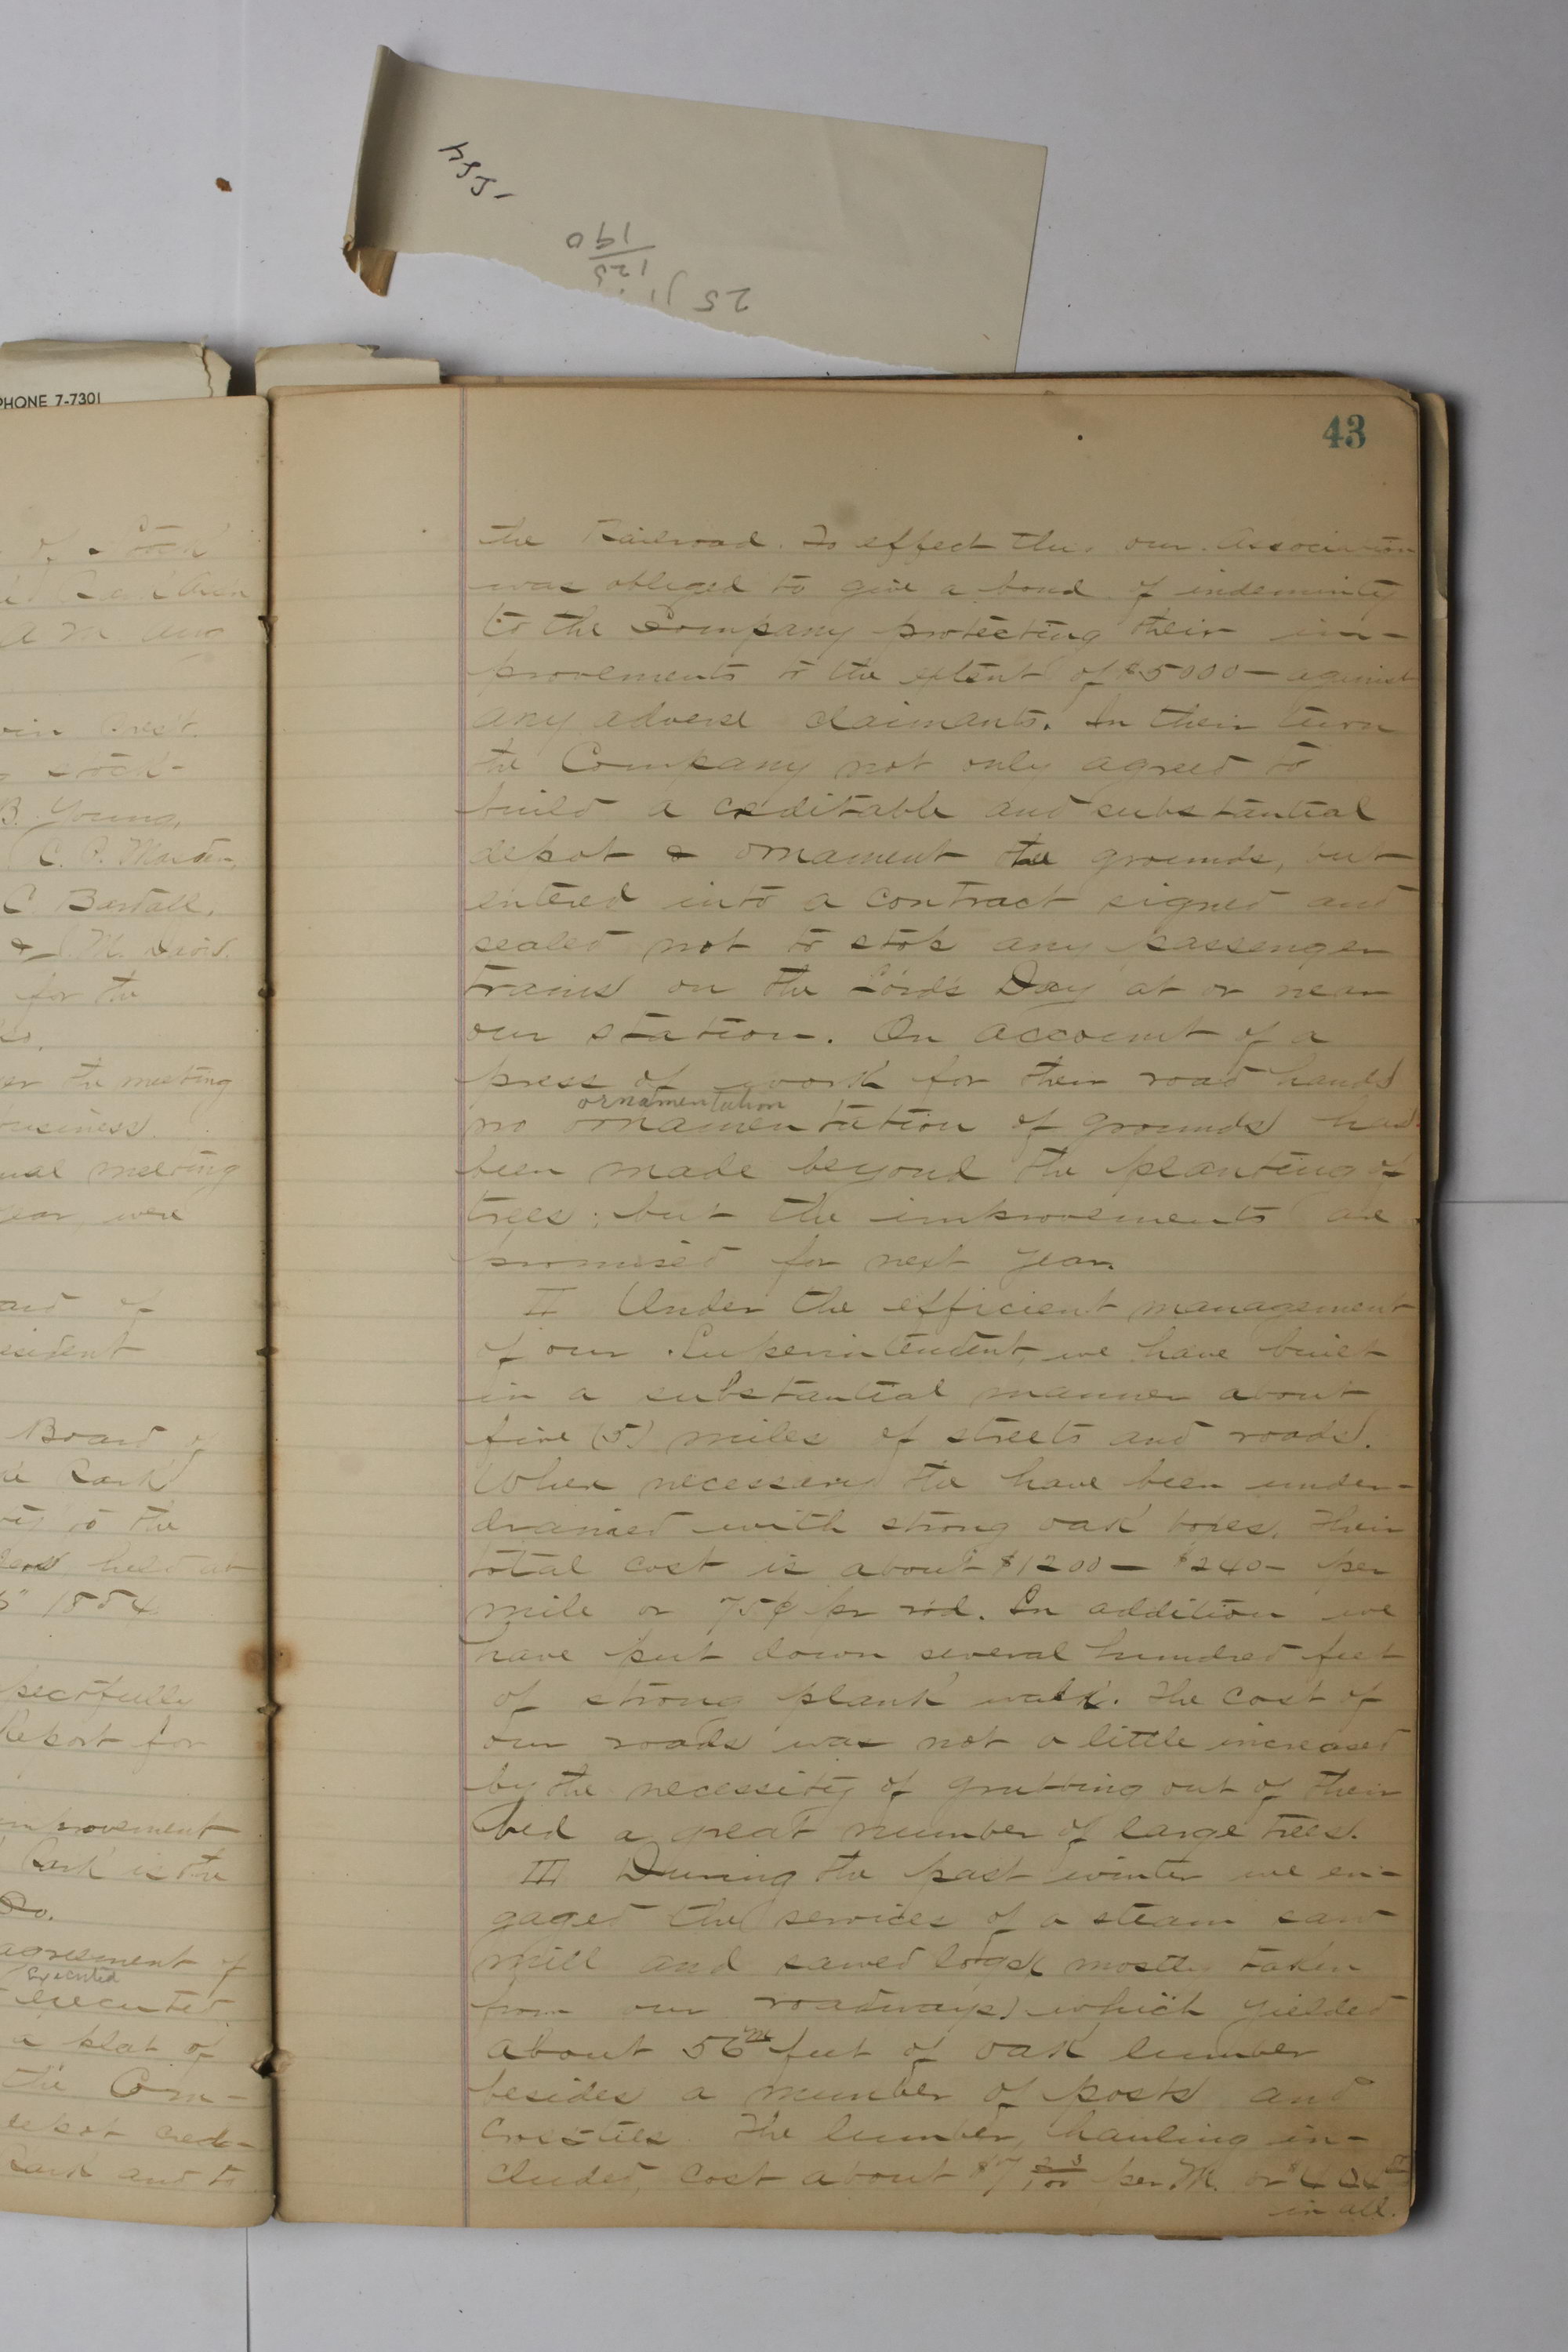 1554
190
125
25
PHONE 7-7301
of Stock
A M Aug
stock-
B. Young,
C. P. Masden,
C. Bestall,
& J. M. Davis.
for the
er the meeting
business.
ual meeting
year, were
ard of
esident
Board of
ke Park
ty to the
ers held at
1884
pectfully
Report for
improvement
Park is the
Do.
agreement of
executed
executed
a plat of
the Com-
depot cred-
Park and to
43
the Railroad. To effect this our Association
was obliged to give a bond of indeminity
to the Company protecting their im-
provements to the extent of $5000— against
any adverse claimants. In their turn
the Company not only agreed to
build a creditable and substantial
depot & ornament the grounds, but
entered into a contract signed and
sealed not to stop any passenger
trains on the Lord's Day at or near
our station. On account of a
press of work for their road hands
ornamentation
no ornamentation of grounds has
been made beyond the planting of
trees; but the improvements are
promised for next year.
II Under the efficient management
of our Superintendent, we have built
in a substantial manner about
five (5) miles of streets and roads.
When necessary the have been under-
drained with strong oak boxes. Their
total cost is about $1200— $240— per
mile or 75¢ pr rod. In addition we
have put down several hundred feet
of strong plank walk. The cost of
our roads was not a little increased
by the necessity of grubbing out of their
bed a great number of large trees.
III During the past winter we en-
gaged the services of a steam saw
mill and sawed logs (mostly taken
from our roadways) which yielded
about 56 m feet of oak lumber
besides a number of posts and
crossties. The lumber, hauling in-
cluded, cost about $7 per M. or
in all.